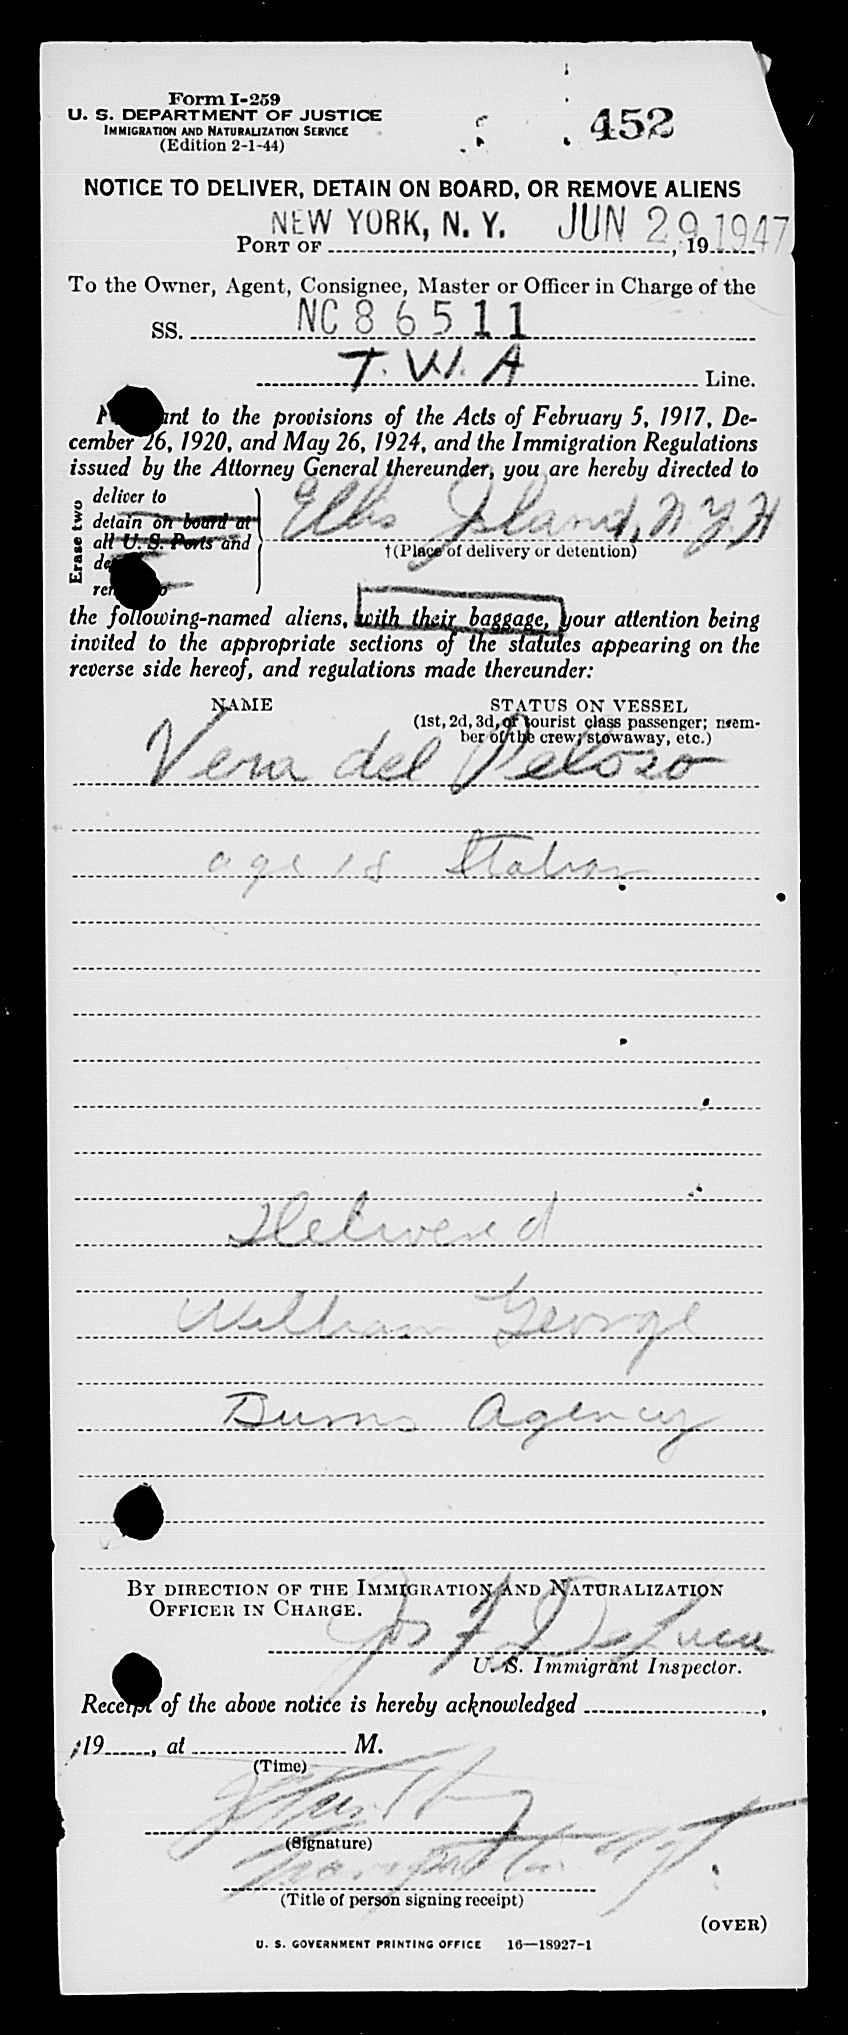 Form I-259
U. S. DEPARTMENT OF JUSTICE
IMMIGRATION AND NATURALIZATION SERVICE
(Edition 2-1-44)
452
NOTICE TO DELIVER, DETAIN ON BOARD, OR REMOVE ALIENS
NEW YORK, N. Y. JUN 29 1947
PORT OF , 19
To the Owner, Agent, Consignee, Master or Officer in Charge of the
SS. NC 86511
T. W. A Line.
to the provisions of the Acts of February 5, 1917, De-
cember 26, 1920, and May 26, 1924, and the Immigration Regulations
issued by the Attorney General thereunder, you are hereby directed to
Erase two
deliver to
detain on board at
all U. S. Ports and
Ellis Island, N.Y.H
†(Place of delivery or detention)
the following-named aliens, with their baggage, your attention being
invited to the appropriate sections of the statutes appearing on the
reverse side hereof, and regulations made thereunder:
NAME STATUS ON VESSEL
(1st, 2d, 3d, or tourist class passenger; mem-
ber of the crew; stowaway, etc.)
Vera del Peloso
age 18 Italian
Delivered
William George
Burns Agency
BY DIRECTION OF THE IMMIGRATION AND NATURALIZATION
OFFICER IN CHARGE.
Jos F DeLuca
U. S. Immigrant Inspector.
Receipt of the above notice is hereby acknowledged ,
19 , at M.
(Time)
(Signature)
(Title of person signing receipt)
(OVER)
U. S. GOVERNMENT PRINTING OFFICE 16—18927-1